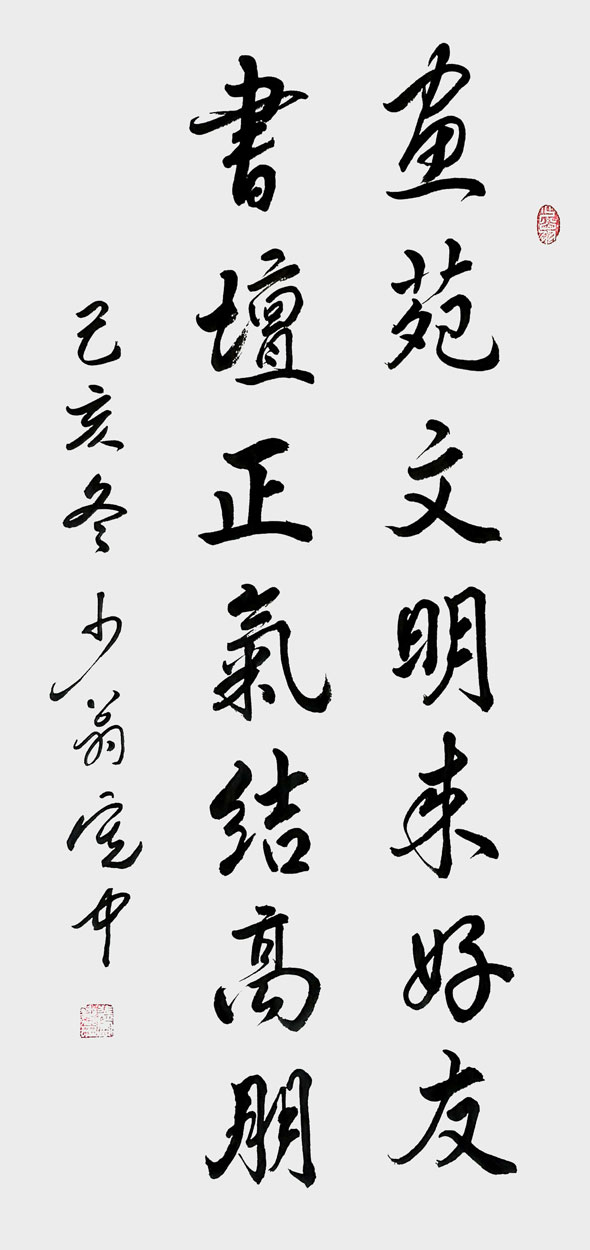 畫苑文明来好友
書壇正氣结高朋
己亥冬少翁宽中